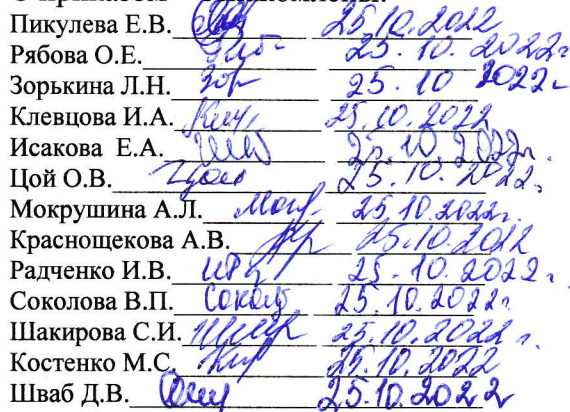 Пикулева Е.В. 25.10.2022
Рябова О.Е. 25.10.2022г
Зорькина Л.Н. Зор 25.10 2022г
Клевцова И.А. 25.10.2022
Исакова Е.А. 25.10.2022г.
Цой О.В. Цой 25.10.2022г.
Мокрушина А.Л. 25.10.2022г.
Краснощекова А.В. 25.10.2022
Радченко И.В. 25.10.2022г.
Соколова В.П. Сокол 25.10.2022г
Шакирова С.И. 25.10.2022
Костенко М.С. 25.10.2022
Шваб Д.В. 25.10.2022